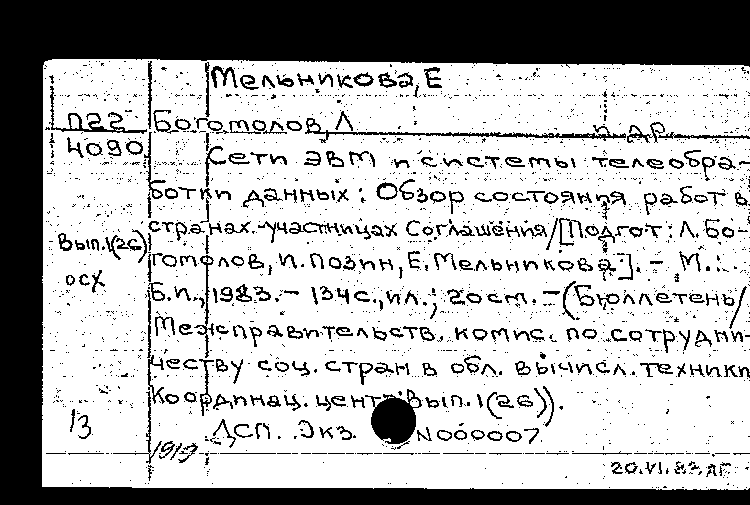 Мельникова, Е
П22 Богомолов, Л и др.
4090 Сети ЭВМ и системы телеобра-
ботки данных: Обзор состояния работ в
странах-участницах Соглашения/[Подгот: Л. Бо-
Вып.1(26)
гомолов, И. Позин, Е. Мельникова]. - М.:
осх
Б.и., 1983. - 134с., ил.; 20 см. - (Бюллетень/
Межправительств. комис. по сотрудни-
честву соц. стран в обл. вычисл. техники
Координац. центр; Вып. 1(26)).
13 ДСП. Экз. N000007
1919
20.VI.83